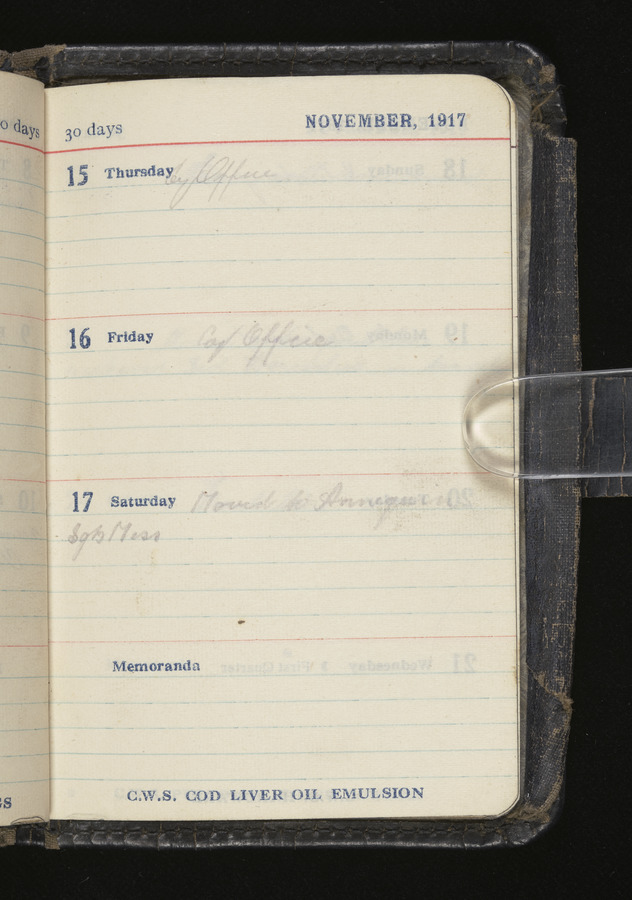 o days
30 days
NOVEMBER, 1917
15 Thursday Office
16 Friday Coy Office
17 Saturday Moved to Annequin
Sgts Mess
Memoranda
C.W.S. COD LIVER OIL EMULSION